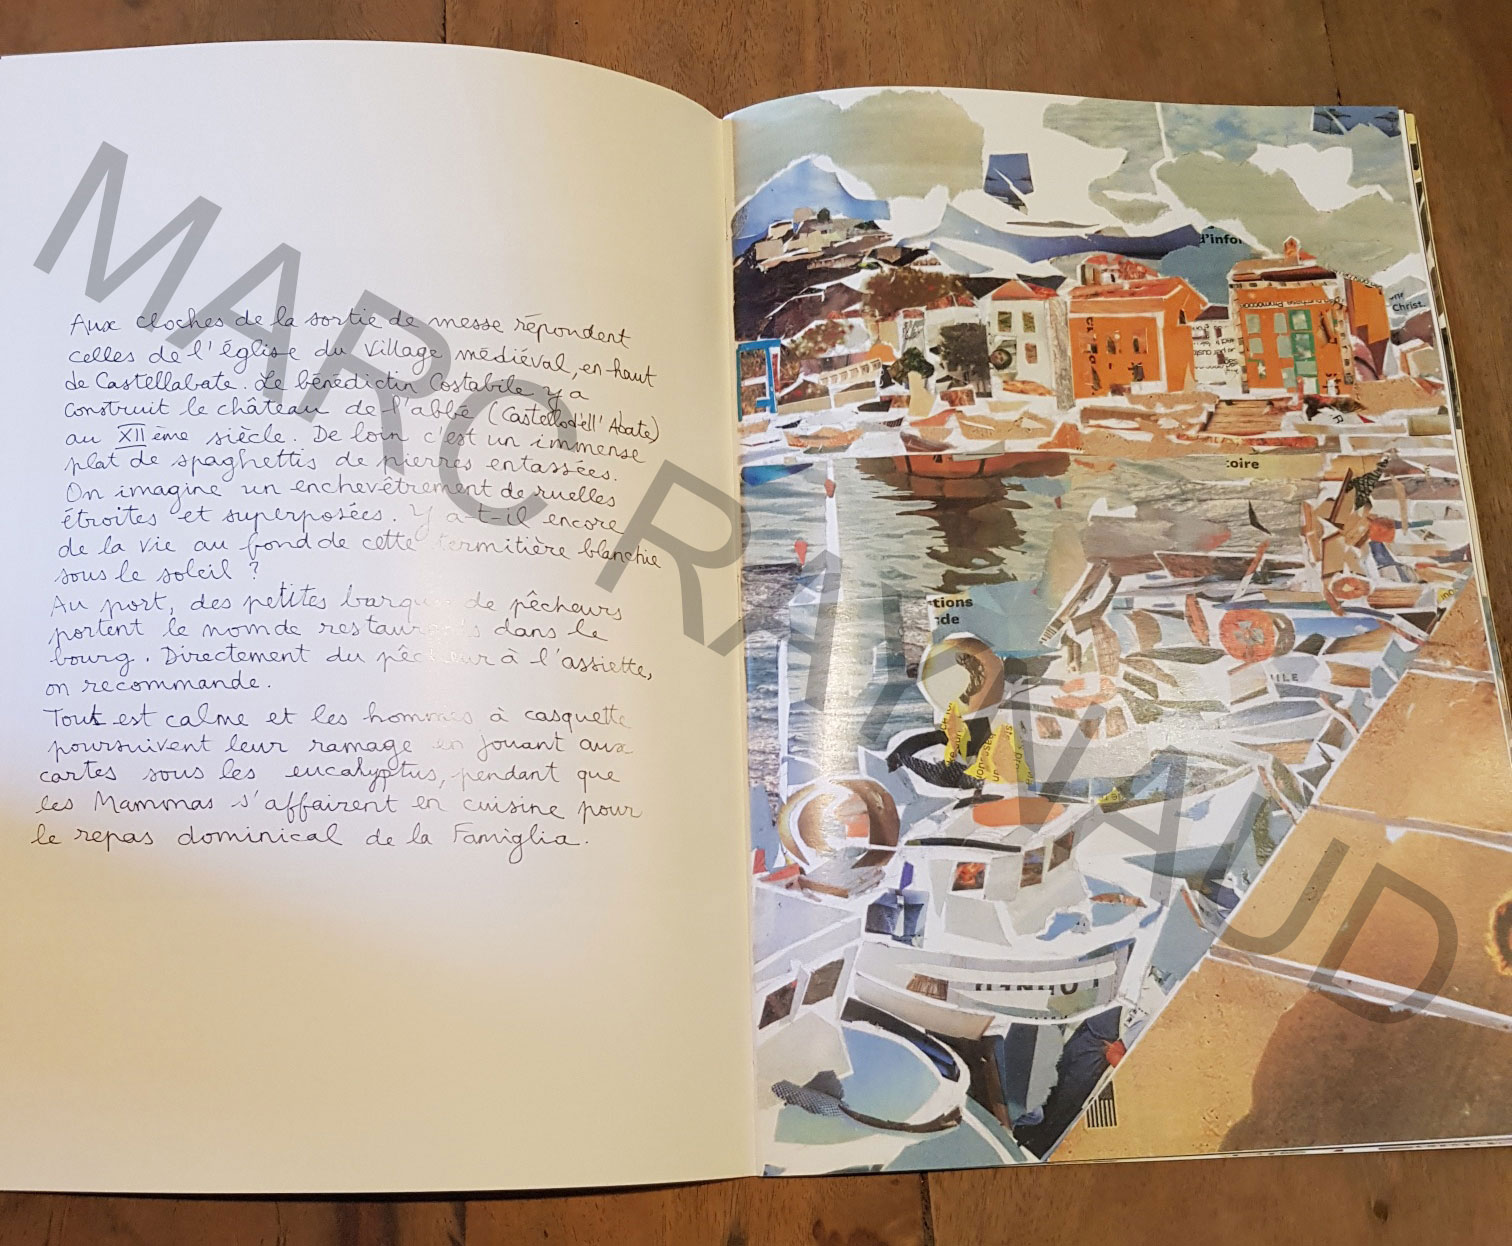 Aux cloches de la sortie de messe répondent
celles de l'église du Village médiéval, en-haut
de Castellabate. Le bénédictin Costabile Y a
construit le château de l'abbé (Castello dell' Abate)
au XIIème siècle. De loin c'est un immense
plat de spaghettis de pierres entassées.
On imagine un enchevêtrement de ruelles
étroites et superposées. Y a-t-il encore
de la vie au fond de cette termitière blanchie
sous le soleil ?
Au port, des petites barques de pêcheurs
portent le nom de restaurants dans le
bourg. Directement du pêcheur à l'assiette,
on recommande.
Tout est calme et les hommes à casquette
poursuivent leur ramage en jouant aux
cartes sous les eucalyptus, pendant que
les Mammas s'affairent en cuisine pour
le repas dominical de la Famiglia.
MARC RAYNAUD
d'infor
Christ.
toire
tions
de
ILE